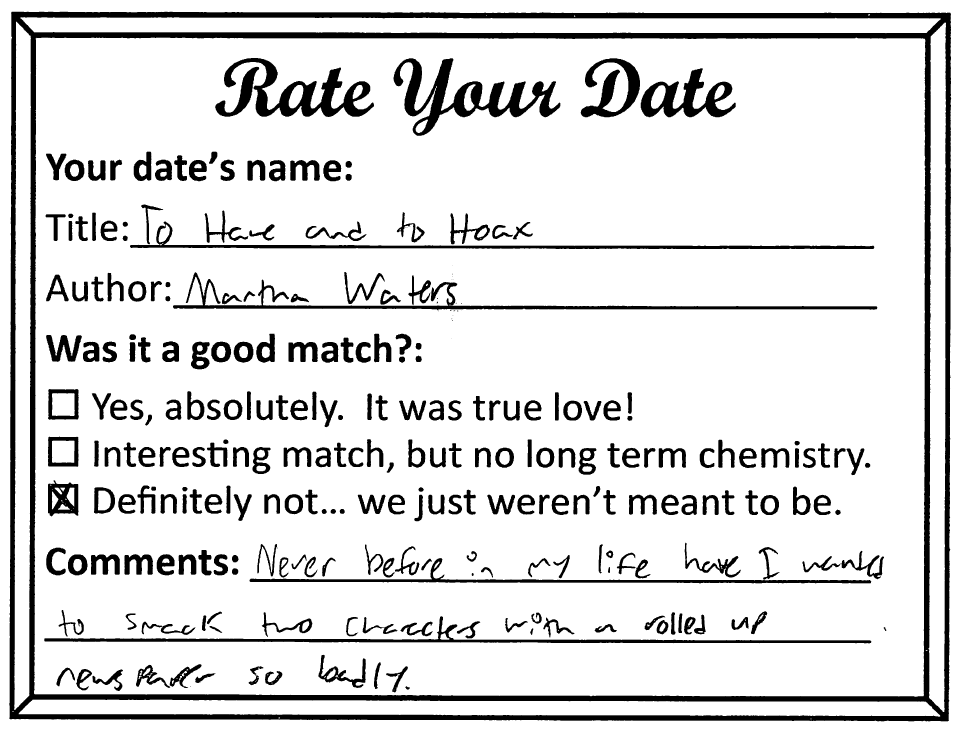 Rate Your Date
Your date's name:
Title: To Have and to Hoax
Author: Martha Waters
Was it a good match?:
☐ Yes, absolutely. It was true love!
☐ Interesting match, but no long term chemistry.
☒ Definitely not... we just weren't meant to be.
Comments: Never before in my life have I wanted
to smack two characters with a rolled up
newspaper so badly.